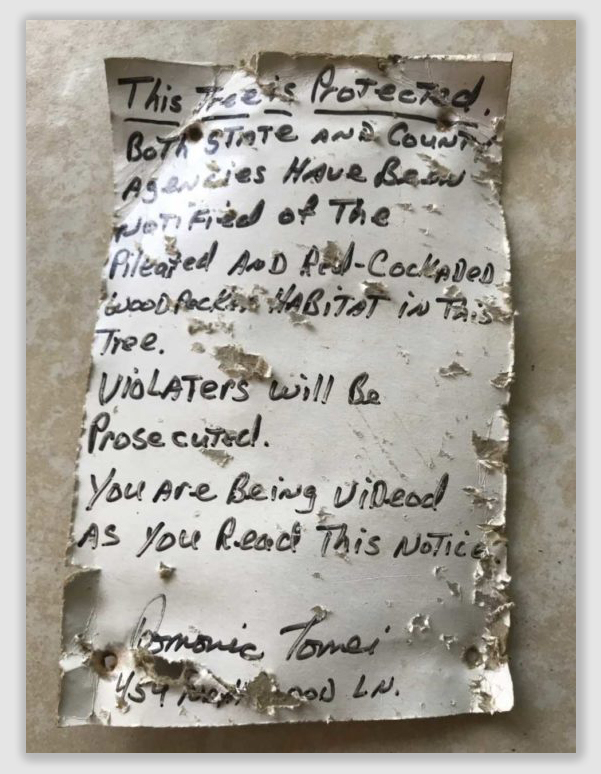 This Tree is Protected.
Both State and County
Agencies Have Been
Notified of The
Pileated And Red-Cockaded
Woodpecker Habitat in This
Tree.
Violaters will Be
Prosecuted.
You Are Being Videod
As You Read This Notice.
Domonic Tomei
454 LN.